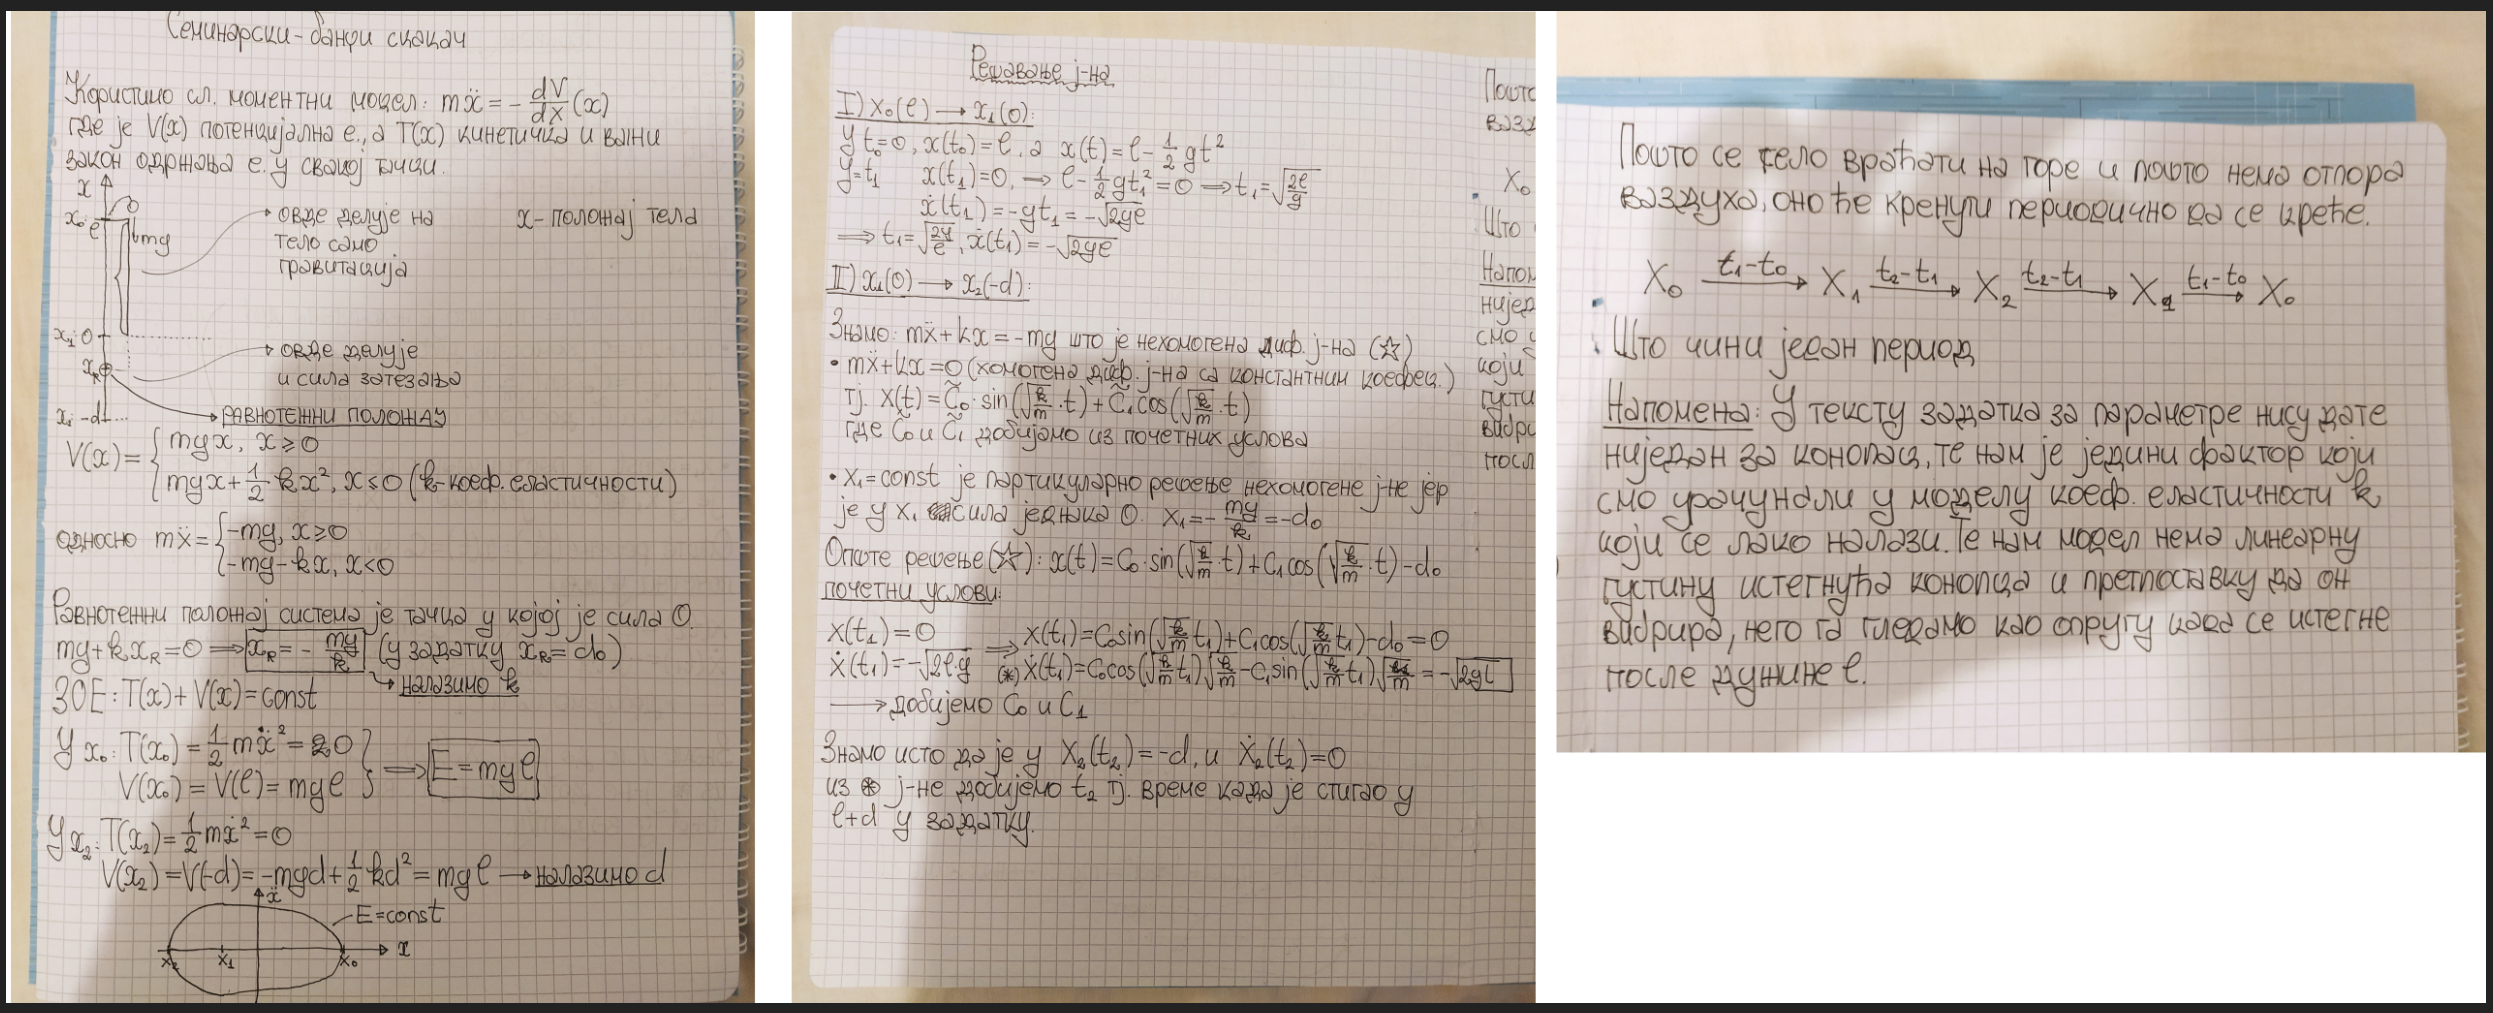 Семинарски - банџи скакач
Користимо сл. моментни модел: mẍ = - dV/dx (x)
где је V(x) потенцијална е., а T(x) кинетичка и важи
закон одржања е. у свакој тачки.
x
x₀: l
mg
овде делује на
тело само
гравитација
x - положај тела
x₁: 0
овде делује
и сила затезања
x_R
РАВНОТЕЖНИ ПОЛОЖАЈ
x₂: -d
V(x) = { mgx, x ≥ 0
mgx + 1/2 kx², x ≤ 0 (k - коеф. еластичности)
односно mẍ = { -mg, x ≥ 0
-mg - kx, x < 0
Равнотежни положај система је тачка у којој је сила 0.
mg + kx_R = 0 ⟹ x_R = - mg/k (у задатку x_R = d₀)
налазимо k
ЗОЕ: T(x) + V(x) = const
У x₀: T(x₀) = 1/2 mẋ² = 0
V(x₀) = V(l) = mgl
⟹ E = mgl
У x₂: T(x₂) = 1/2 mẋ² = 0
V(x₂) = V(-d) = -mgd + 1/2 kd² = mgl → налазимо d
ẋ
E = const
x₂ x₁ x₀ x
Решавање ј-на
I) x₀(l) → x₁(0):
У t₀ = 0, x(t₀) = l, а x(t) = l - 1/2 gt²
У t₁ x(t₁) = 0, ⟹ l - 1/2 gt₁² = 0 ⟹ t₁ = √(2l/g)
ẋ(t₁) = -gt₁ = -√(2gl)
⟹ t₁ = √(2g/l), ẋ(t₁) = -√(2gl)
II) x₁(0) → x₂(-d):
Знамо: mẍ + kx = -mg што је нехомогена диф. ј-на (☆)
• mẍ + kx = 0 (хомогена диф. ј-на са константним коефец.)
тј. x(t) = C̃₀ · sin(√(k/m) · t) + C̃₁ cos(√(k/m) · t)
где C̃₀ и C̃₁ добијамо из почетних услова
• x₁ = const је партикуларно решење нехомогене ј-не јер
је у x₁ сила једнака 0. x₁ = - mg/k = -d₀
Опште решење (☆): x(t) = C₀ · sin(√(k/m) · t) + C₁ cos(√(k/m) · t) - d₀
почетни услови:
x(t₁) = 0 ⟹ x(t₁) = C₀ sin(√(k/m) t₁) + C₁ cos(√(k/m) t₁) - d₀ = 0
ẋ(t₁) = -√(2l·g) (*) ẋ(t₁) = C₀ cos(√(k/m) t₁) √(k/m) - C₁ sin(√(k/m) t₁) √(k/m) = -√(2gl)
→ добијемо C₀ и C₁
Знамо исто да је у X₂(t₂) = -d, и Ẋ₂(t₂) = 0
из ⊛ ј-не добијемо t₂ тј. време када је стигао у
l+d у задатку.
Пошто се тело враћати на горе и пошто нема отпора
ваздуха, оно ће кренути периодично да се креће.
X₀ —t₁-t₀→ X₁ —t₂-t₁→ X₂ —t₂-t₁→ X₁ —t₁-t₀→ X₀
Што чини један период
Напомена: У тексту задатка за параметре нису дате
ниједан за конопац, те нам је једини фактор који
смо урачунали у моделу коеф. еластичности k
који се лако налази. Те нам модел нема линеарну
густину истегнућа конопца и претпоставку да он
вибрира, него га гледамо као опругу када се истегне
после дужине l.